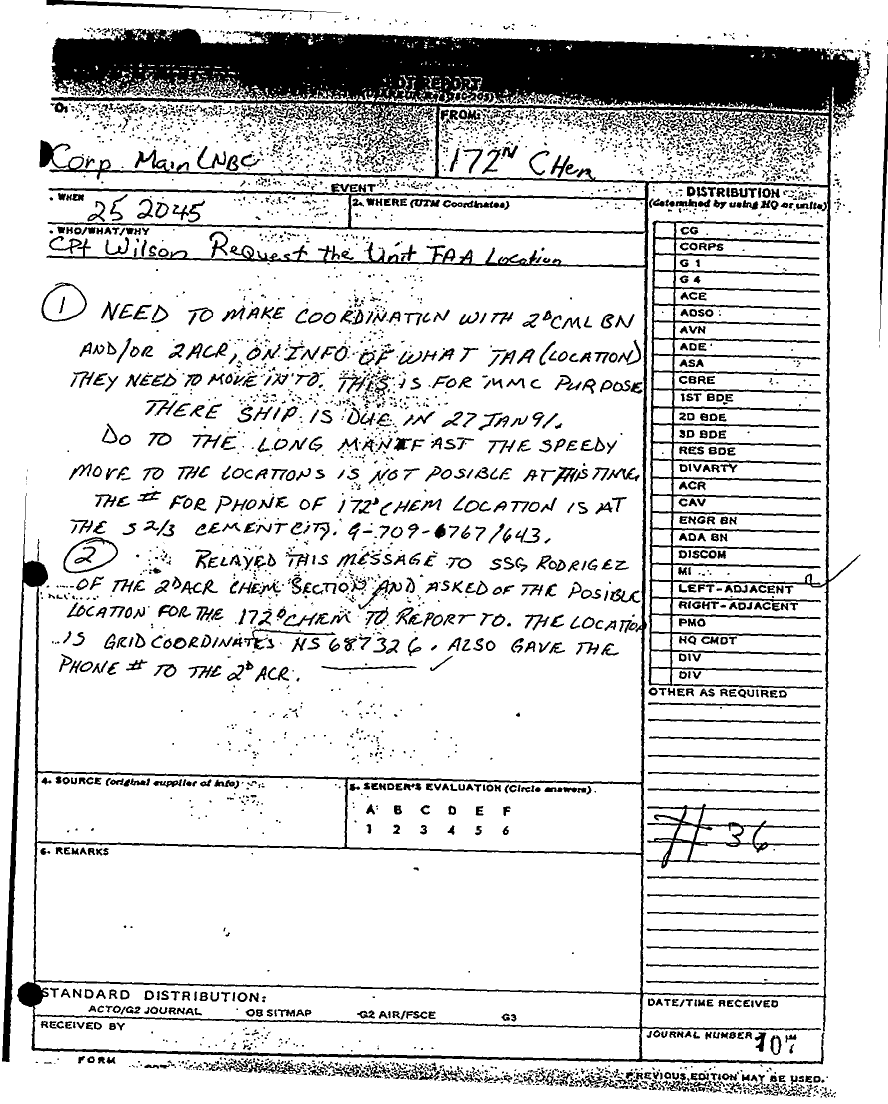 OT REPORT
O:
FROM:
Corp Main NBC
172ᴺ CHem
EVENT
. WHEN
25 2045
2. WHERE (UTM Coordinates)
. WHO/WHAT/WHY
CPt Wilson Request the Unit TAA Location
1 NEED TO MAKE COORDINATION WITH 2ᴰ CML BN
AND/OR 2ACR, ON INFO OF WHAT TAA (LOCATION)
THEY NEED TO MOVE INTO. THIS IS FOR MMC PURPOSE
THERE SHIP IS DUE IN 27 JAN 91.
DO TO THE LONG MANIFAST THE SPEEDY
MOVE TO THE LOCATIONS IS NOT POSIBLE AT THIS TIME.
THE # FOR PHONE OF 172ᴰ CHEM LOCATION IS AT
THE S 2/3 CEMENT CITY. G-709-6767/643.
2 RELAYED THIS MESSAGE TO SSG RODRIGEZ
OF THE 2ᴰ ACR CHEM SECTION AND ASKED OF THE POSIBLE
LOCATION FOR THE 172ᴰ CHEM TO REPORT TO. THE LOCATION
IS GRID COORDINATES NS 687326. ALSO GAVE THE
PHONE # TO THE 2ᴰ ACR.
DISTRIBUTION
(determined by using HQ or units)
CG
CORPS
G 1
G 4
ACE
ADSO
AVN
ADE
ASA
CBRE
1ST BDE
2D BDE
3D BDE
RES BDE
DIVARTY
ACR
CAV
ENGR BN
ADA BN
DISCOM
MI
LEFT-ADJACENT
RIGHT-ADJACENT
PMO
HQ CMDT
DIV
DIV
OTHER AS REQUIRED
# 36
4. SOURCE (original supplier of info)
5. SENDER'S EVALUATION (Circle answers)
A B C D E F
1 2 3 4 5 6
6. REMARKS
STANDARD DISTRIBUTION:
ACTO/G2 JOURNAL OB SITMAP G2 AIR/FSCE G3
RECEIVED BY
DATE/TIME RECEIVED
JOURNAL NUMBER
107
FORM
PREVIOUS EDITION MAY BE USED.